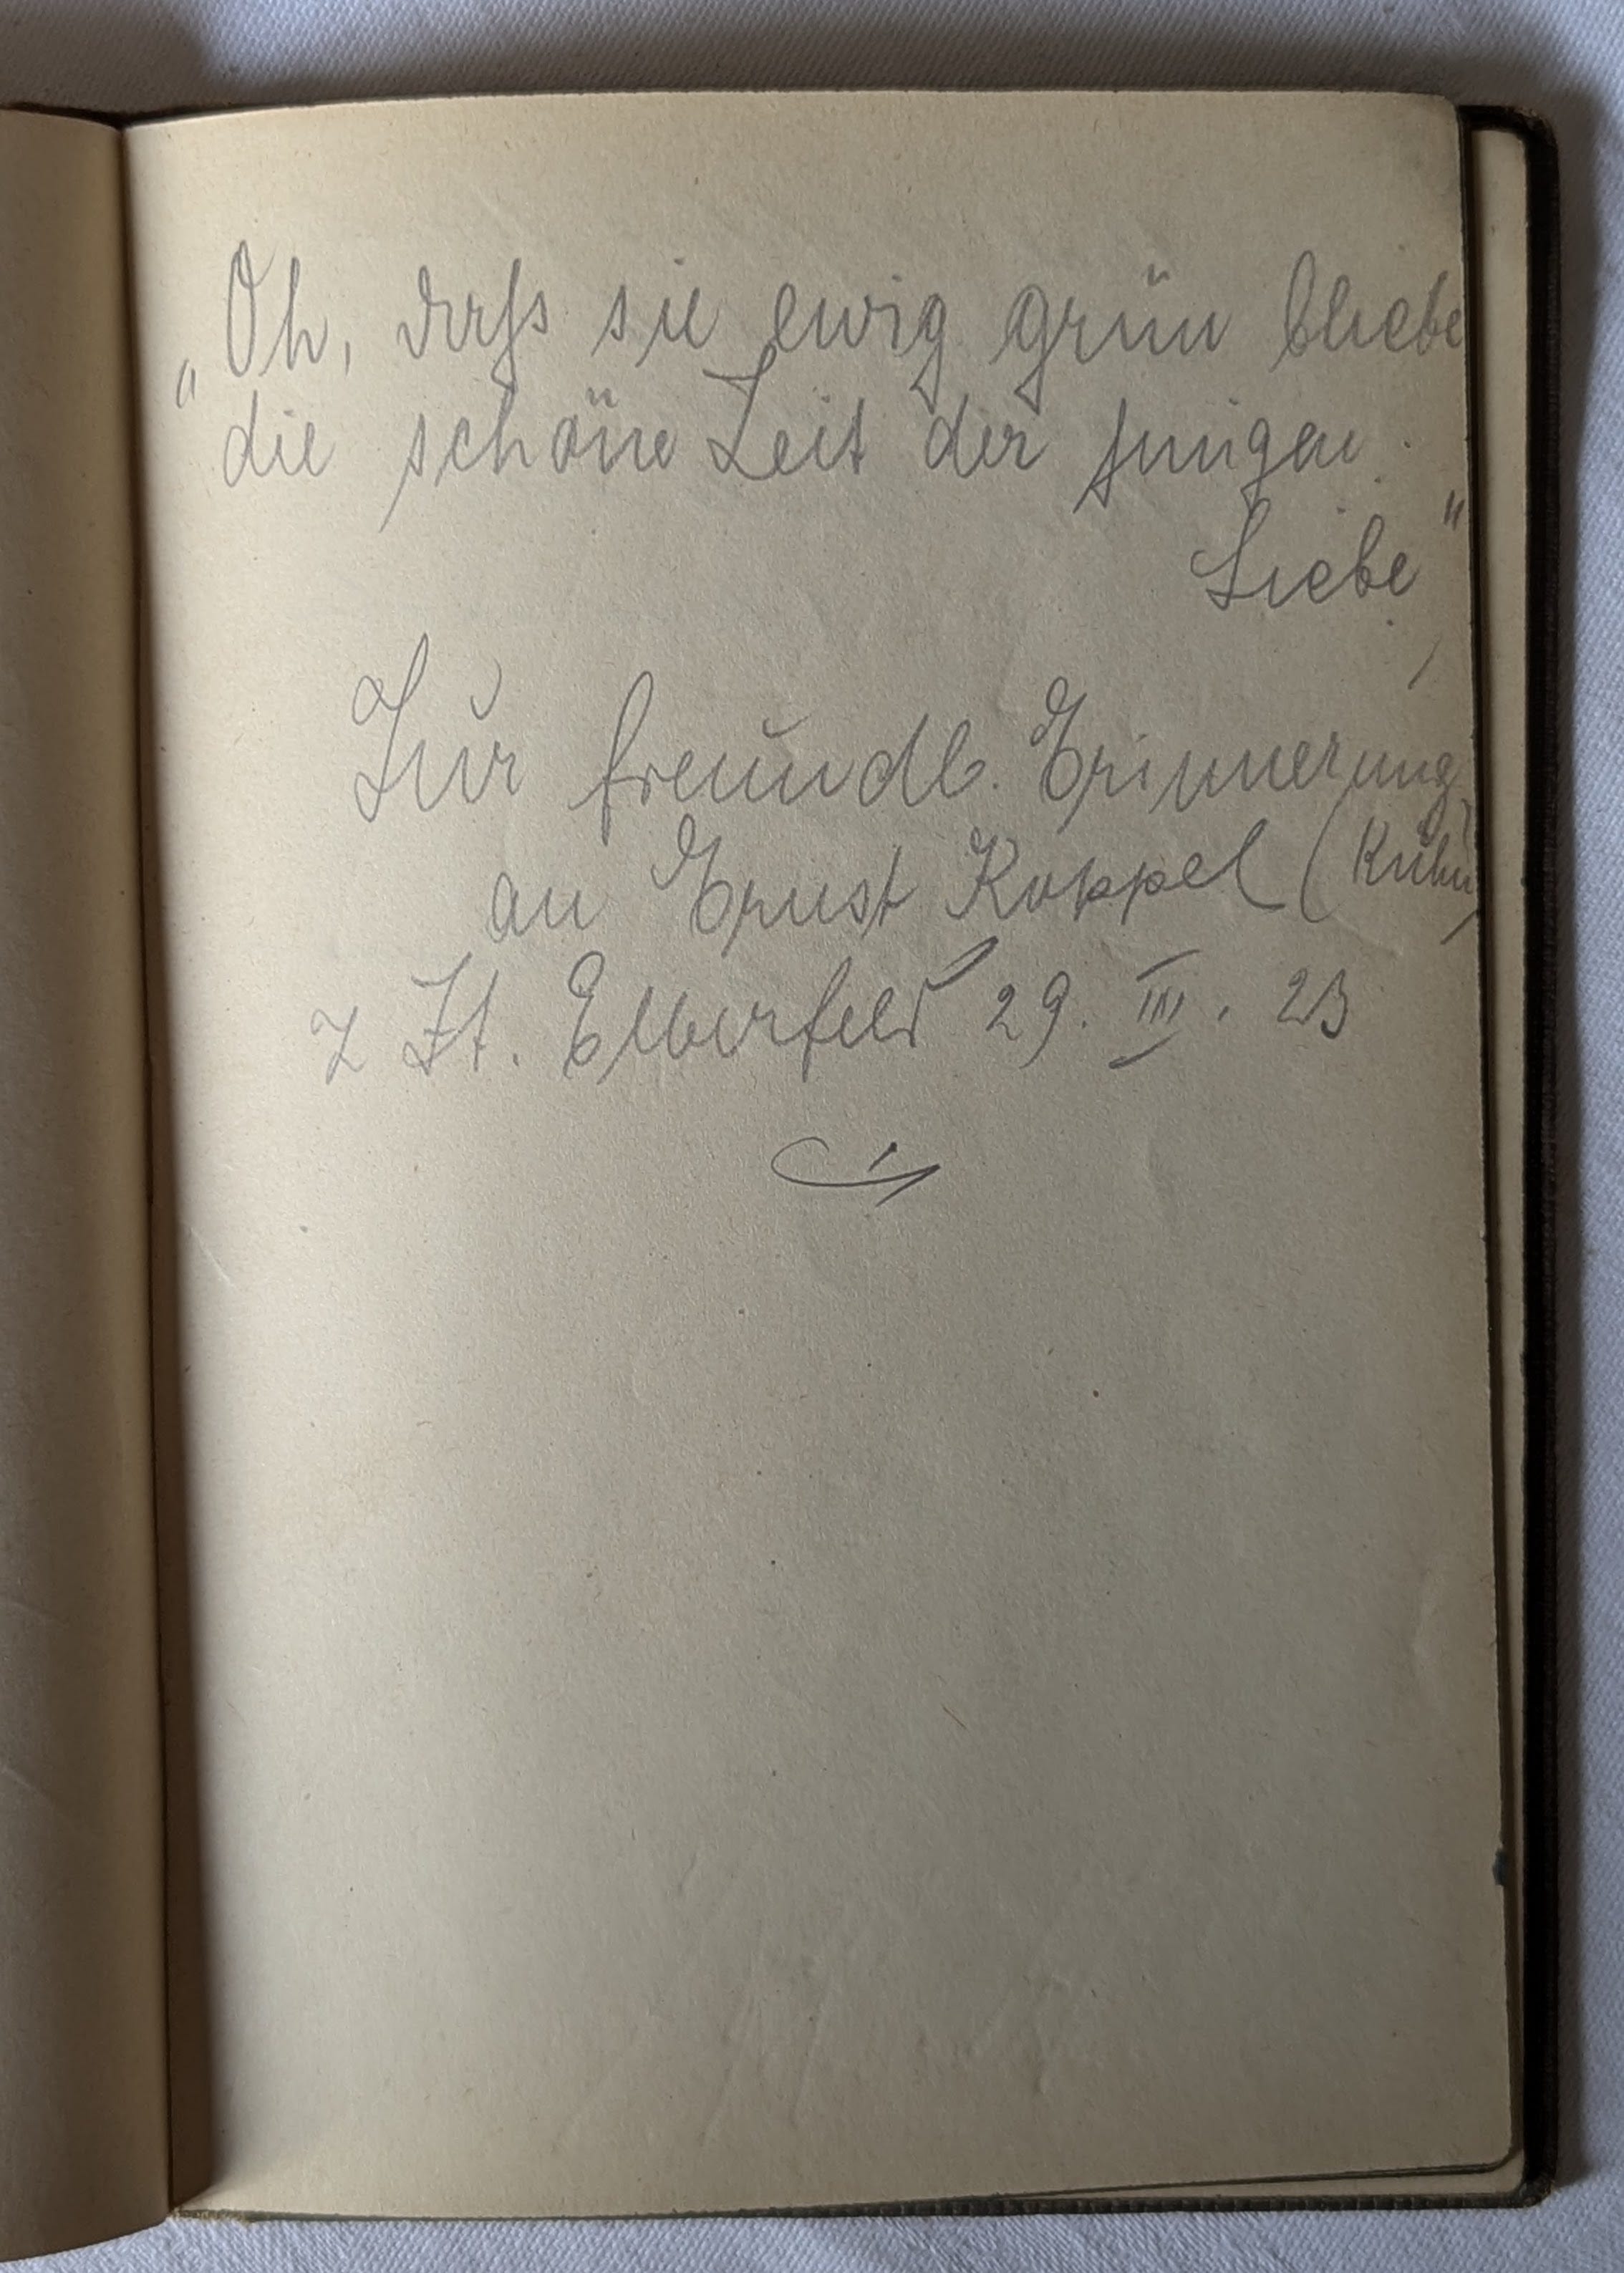 „Oh, dass sie ewig grün bliebe
die schöne Zeit der jungen
Liebe"
Zur freundl. Erinnerung
an Ernst Koppel (Kühn)
z Zt. Elberfeld 29. III. 23